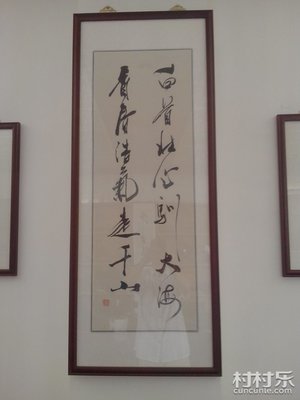 白首壮心驯大海
青春浩气走千山
村村乐
www.cuncunle.com